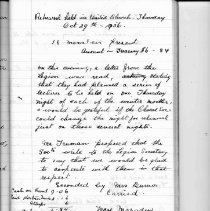 Rehearsal held in United Church. Thursday
Oct 29th - 1936.
18 members present
Amount in Treasury $6.84
On this evening, a letter from the
Legion was read, stating
that they had planned a series of
lectures to be held on one Thursday
night of each of the winter months,
& would be grateful if the Choral Soc
could change the night for rehearsal
just on those several nights.
Mr Freeman proposed that the
Sec'y write to the Legion Secretary
to say that we would be glad
to cooperate with them in that
respect.
Seconded by Mrs
Carried.
Cash on hand